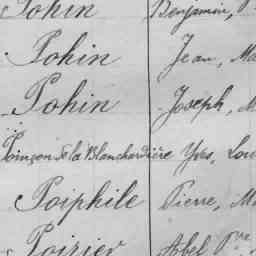 Pohin Benjamin, P
Pohin Jean, Ma
Pohin Joseph, M
Poinçon de la Blanchardière Yves, Lou
Poiphile Pierre, Ma
Poirier Abel Pre